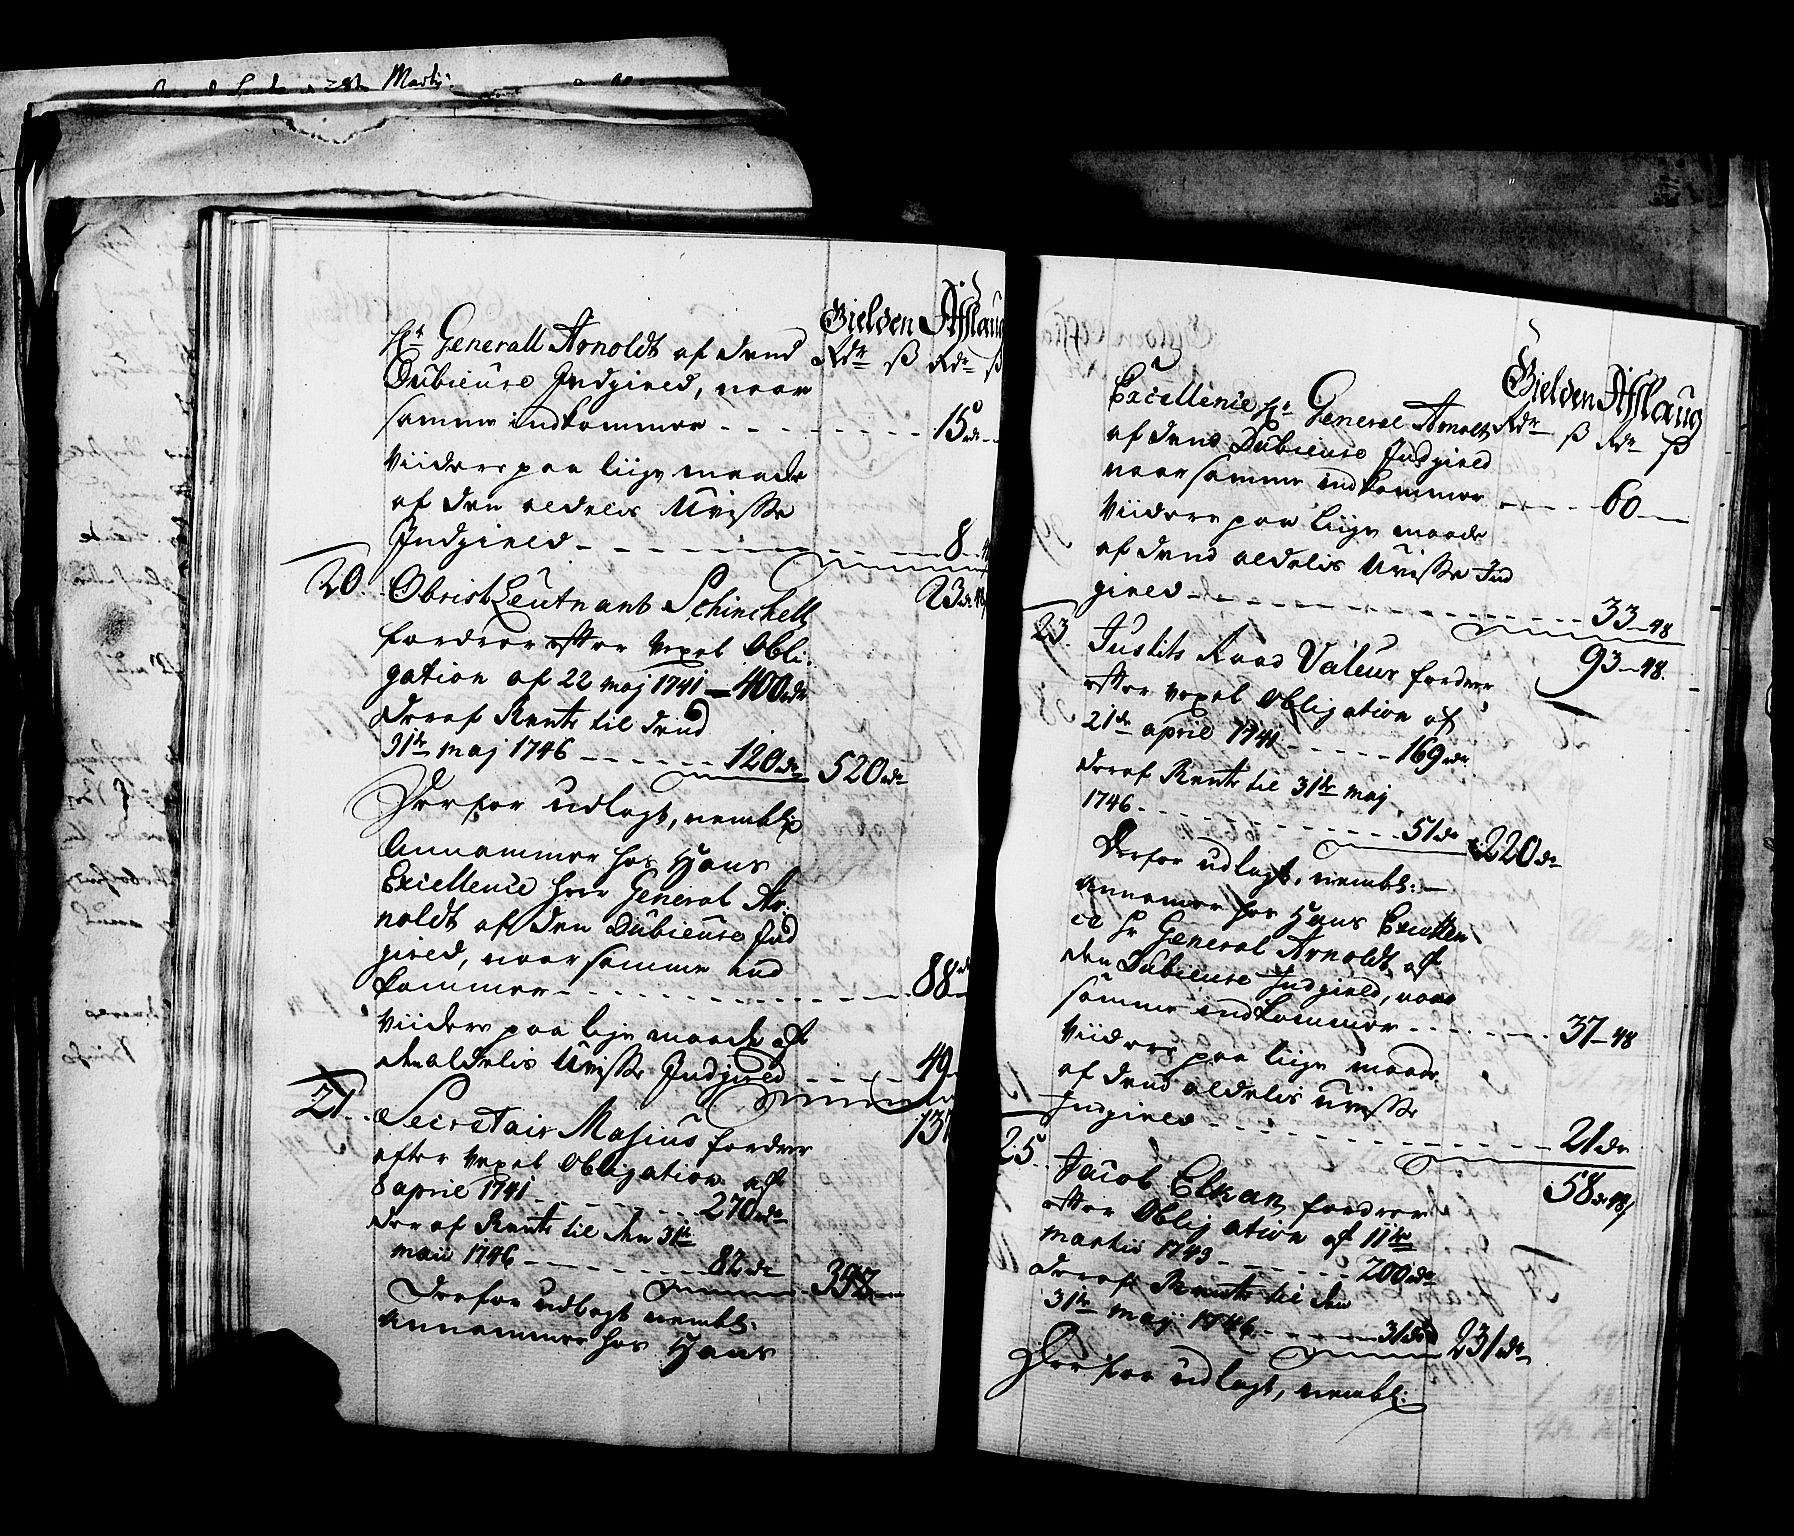 28de Martij
Gielden Afslaug
Rdr ß Rdr ß
Hr Generall Arnoldt af dend
Dubieuse Indgield, naar
samme indkommer 15 rdr
Viidere paa liige maade
af den aldelis Uvisse
Indgield 8
23 rdr 48
20. Obrist Leutnant Schinchell
fordrer efter Vexel Obli-
gation af 22 maj 1741 400 rdr
deraf Rente til dend
31te maj 1746 120 rdr 520 rdr
Derfor udlagt, nemblig
Annammer hos Hans
Excellence herr General Ar-
noldt af den Dubieuse Ind
gield, naar samme ind
kommer 88
Viidere paa lige maade af
den aldelis Uvisse Indgield 49
137
21. Secretair Masius fordrer
efter Vexel Obligation af
8 april 1741 270 rdr
der af Rente til den 31te
maii 1746 82 rdr
Derfor udlagt nembl:
annammer hos Hans
Gielden Afslaug
Rdr ß Rdr ß
Excellence Hr General Arnoldt
af dend Dubieuse Indgield
naar samme indkommer 60
Viidere paa liige maade
af dend aldelis Uvisse Ind
gield 33 48
93 48.
23. Justits Raad Valeur fordrer
efter Vexel Obligation af
21de april 1741 169 rdr
deraf Rente til 31te maj
1746 51 rdr 220 rdr
Derfor udlagt, nembl:
annamer hos Hans Excellen
ce Hr General Arnoldt af
den Dubieuse Indgield, naar
samme indkommer 37 48
Viidere paa liige maade
af dend aldelis Uvisse
Indgield 21 dr
58 dr 48ß
25. Jacob Elkan fordrer
efter Obligation af 11te
martii 1743 200 rdr
deraf Rente til den
31te maij 1746 31 rdr 231 rdr
Derfor udlagt, nembl: